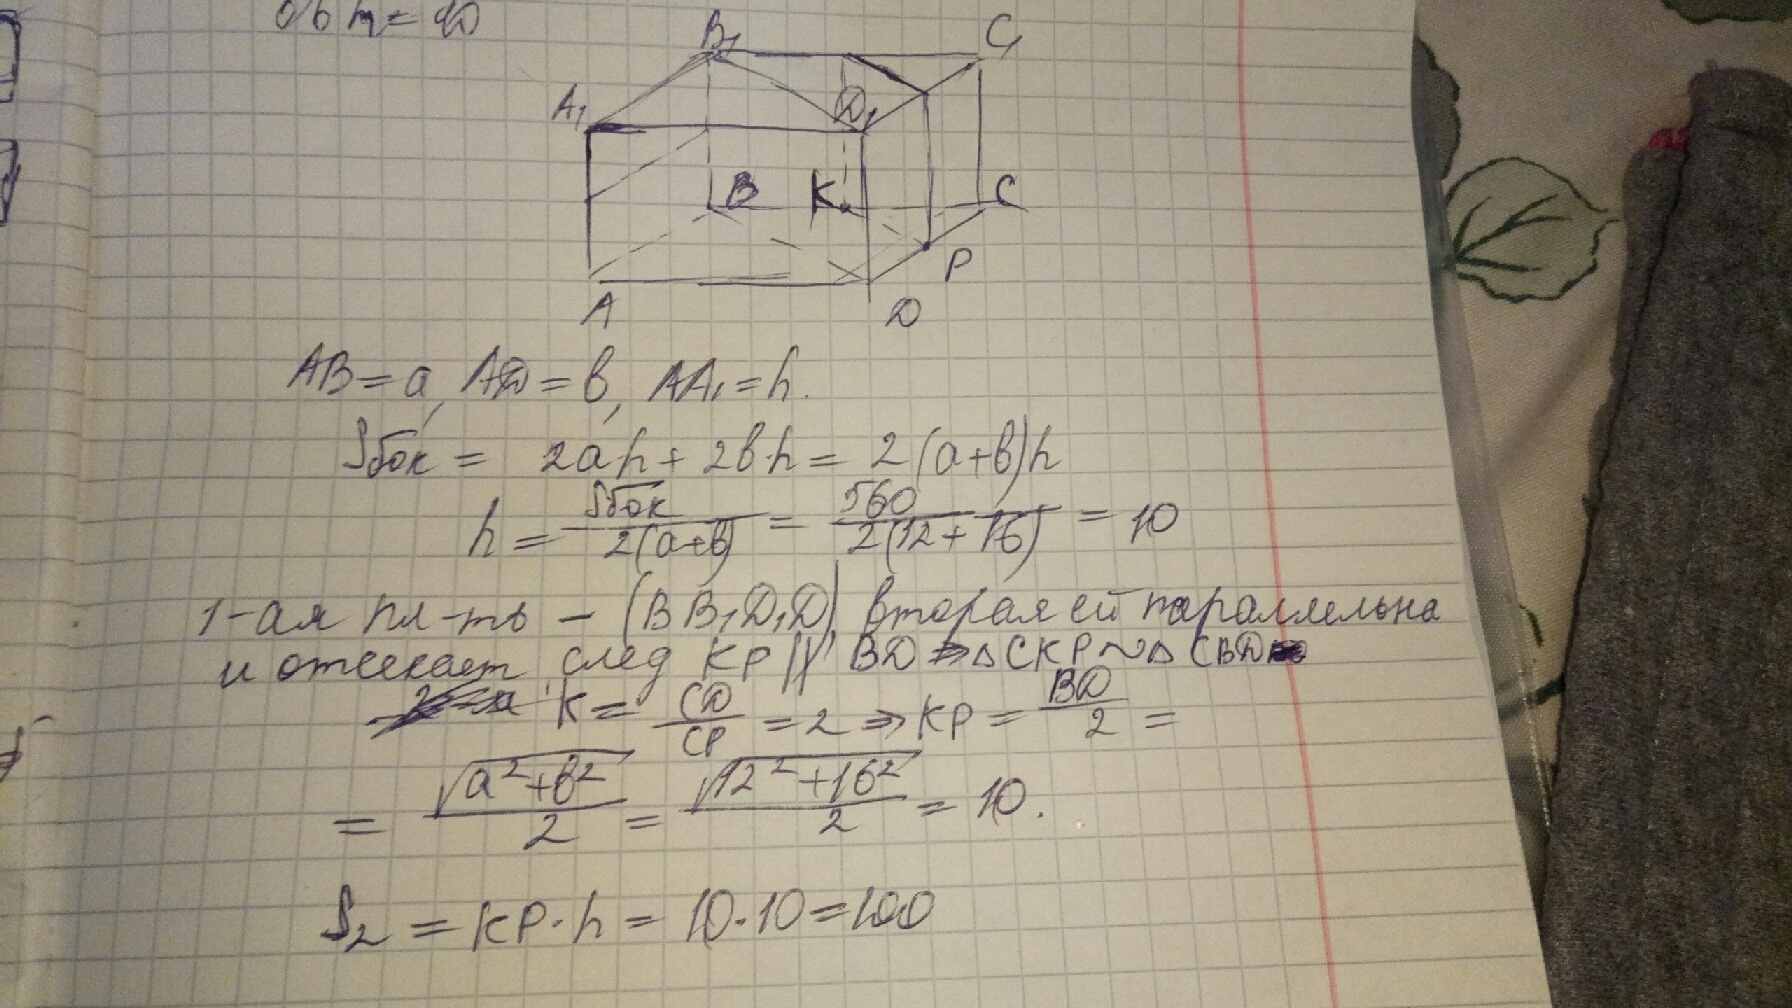 B₁ C₁
A₁ D₁
B K C
P
A D
AB = a, AD = b, AA₁ = h.
Sбок = 2ah + 2bh = 2(a+b)h
h = Sбок / 2(a+b) = 560 / 2(12+16) = 10
1-ая пл-ть – (BB₁D₁D) вторая ей параллельна
и отсекает след KP || BD ⇒ △CKP ~ △CBD
K = CD / CP = 2 ⇒ KP = BD / 2 =
= √(a²+b²) / 2 = √(12²+16²) / 2 = 10.
S₂ = KP·h = 10·10 = 100